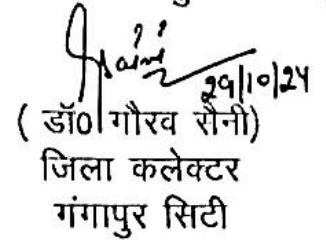 29/10/24
( डॉ० गौरव सैनी)
जिला कलेक्टर
गंगापुर सिटी